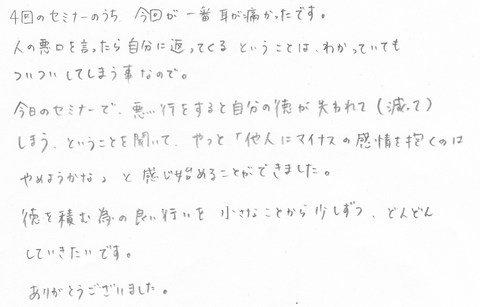 4回のセミナーのうち、今回が一番耳が痛かったです。
人の悪口を言ったら自分に返ってくる ということは、わかっていても
ついついしてしまう事なので。
今日のセミナーで、悪い行をすると自分の徳が失われて(減って)
しまう、ということを聞いて、やっと「他人にマイナスの感情を抱くのは
やめようかな」と感じ始めることができました。
徳を積む為の良い行いを 小さなことから少しずつ、どんどん
していきたいです。
ありがとうございました。